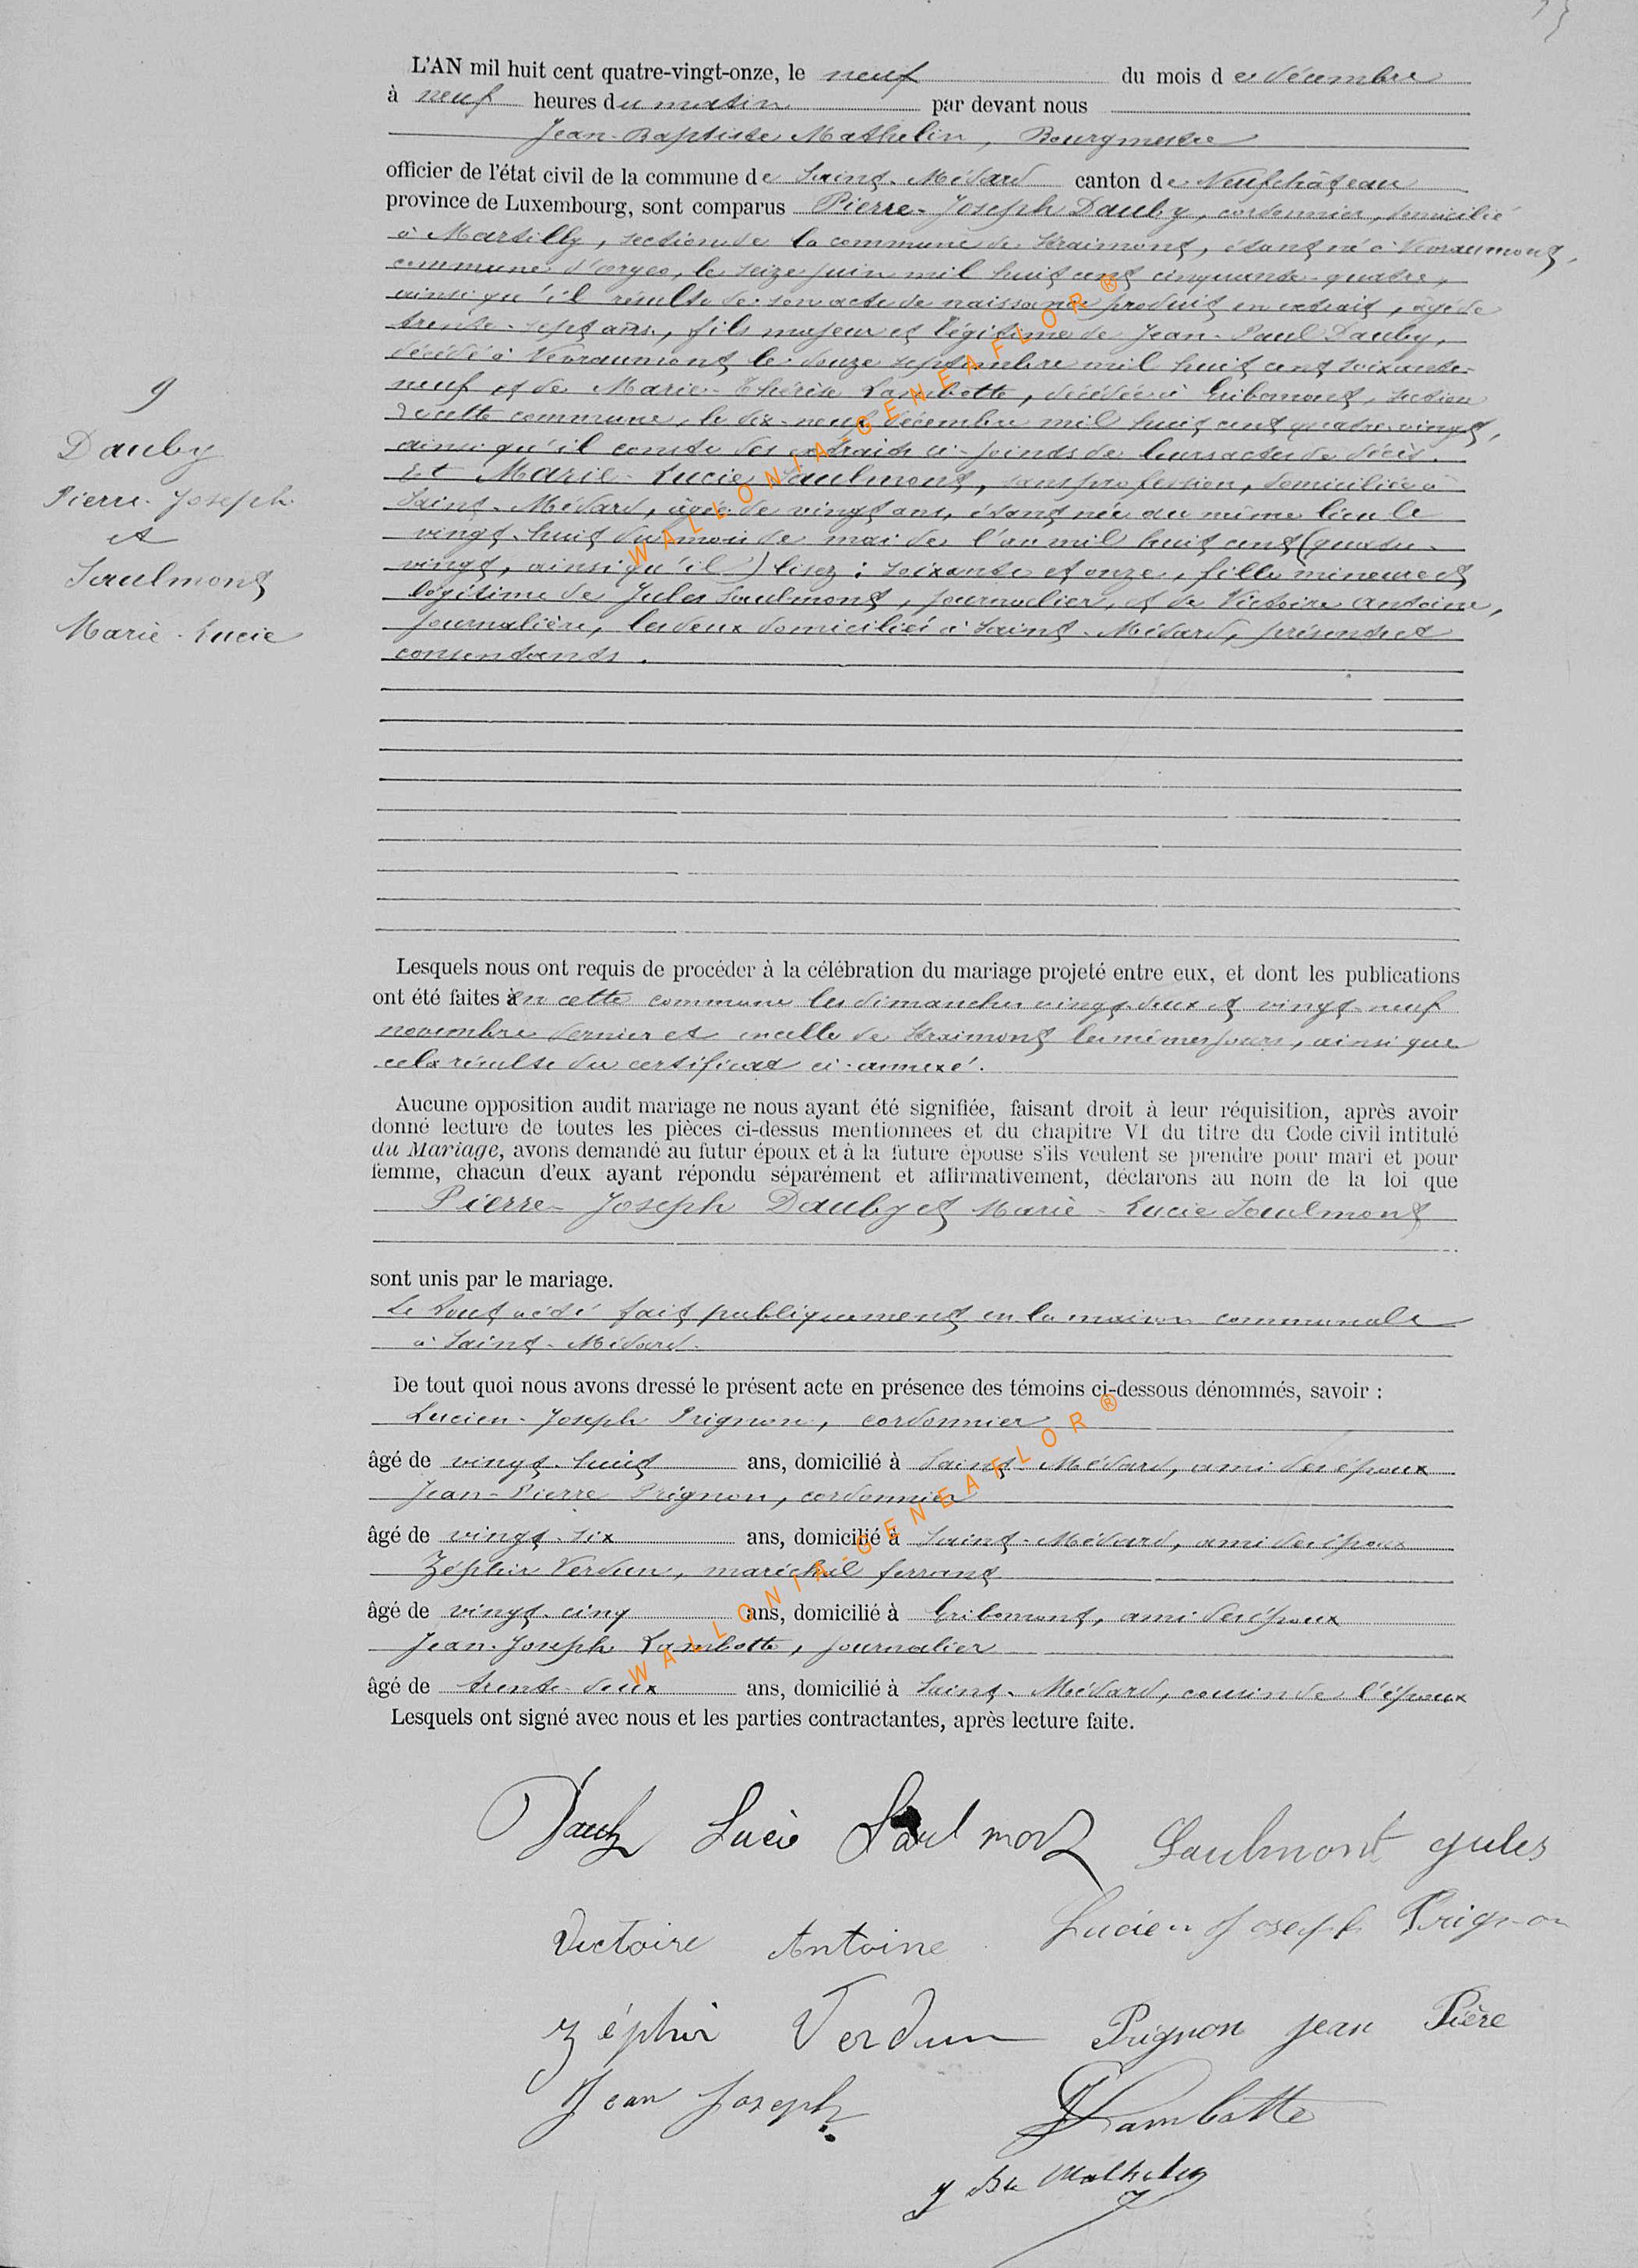 L'AN mil huit cent quatre-vingt-onze, le neuf du mois de décembre
à neuf heures du matin par devant nous
Jean-Baptiste Mathelin, Bourgmestre
officier de l'état civil de la commune de Saint-Médard canton de Neufchâteau
province de Luxembourg, sont comparus Pierre-Joseph Dauby, cordonnier, domicilié
à Martilly, section de la commune de Straimont, étant né à Vivraumont,
commune d'orgeo, le seize juin mil huit cent cinquante-quatre,
ainsi qu'il résulte de son acte de naissance produit en extrait, âgé de
trente-sept ans, fils majeur et légitime de Jean-Paul Dauby,
décédé à le douze septembre mil huit cent soixante-
neuf et de Marie-Thérèse Lambotte, décédée à Gribomont, section
de cette commune, le dix-neuf décembre mil huit cent quatre-vingt,
ainsi qu'il conste des extraits ci-joints de leurs actes de décès.
Et Marie-Lucie Saulmont, sans profession, domiciliée à
Saint-Médard, âgée de vingt ans, étant née au même lieu le
vingt-huit du mois de mai de l'an mil huit cent (quatre-
vingt, ainsi qu'il) lisez : soixante et onze, fille mineure et
légitime de Jules Saulmont, journalier, et de Victoire Antoine,
journalière, les deux domiciliés à Saint-Médard, présents et
consentants.
9
Dauby
Pierre-Joseph
et
Saulmont
Marie-Lucie
Lesquels nous ont requis de procéder à la célébration du mariage projeté entre eux, et dont les publications
ont été faites en cette commune les dimanches vingt-deux et vingt-neuf
novembre dernier et en celle de Straimont les mêmes jours, ainsi que
cela résulte du certificat ci-annexé.
Aucune opposition audit mariage ne nous ayant été signifiée, faisant droit à leur réquisition, après avoir
donné lecture de toutes les pièces ci-dessus mentionnees et du chapitre VI du titre du Code civil intitulé
du Mariage, avons demandé au futur époux et à la future épouse s'ils veulent se prendre pour mari et pour
femme, chacun d'eux ayant répondu séparément et affirmativement, déclarons au nom de la loi que
Pierre-Joseph Dauby et Marie-Lucie Saulmont
sont unis par le mariage.
Le tout a été fait publiquement en la maison communale
à Saint-Médard.
De tout quoi nous avons dressé le présent acte en présence des témoins ci-dessous dénommés, savoir :
Lucien-Joseph Prignon, cordonnier
âgé de vingt-huit ans, domicilié à Saint-Médard, ami des époux
Jean-Pierre Prignon, cordonnier
âgé de vingt-six ans, domicilié à Saint-Médard, ami des époux
Zéphir Verdun, maréchal ferrant
âgé de vingt-cinq ans, domicilié à Gribomont, ami des époux
Jean-Joseph Lambotte, journalier
âgé de trente-deux ans, domicilié à Saint-Médard, cousin de l'époux
Lesquels ont signé avec nous et les parties contractantes, après lecture faite.
Dauby Lucie Saulmont Saulmont jules
Victoire Antoine Lucien Joseph Prignon
Zéphir Verdun Prignon jean Pière
Jean Joseph Lambotte
J Bte Mathelin
WALLONIA-GENEAFLOR®
WALLONIA-GENEAFLOR®